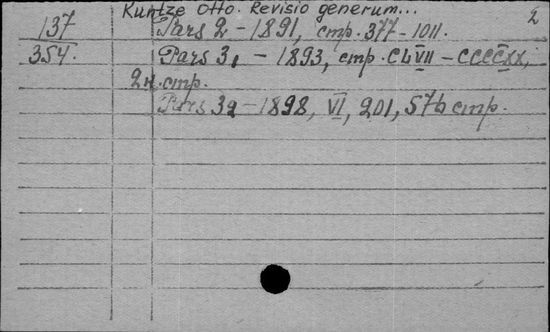 Kuntze Otto. Revisio generum... 2
137 Pars 2 – 1891, стр. 377–1011.
354. Pars 3, – 1893, стр. CLVII – CCCCXX,
2 н. стр.
Pars 32 – 1898, VI, 201, 576 стр.